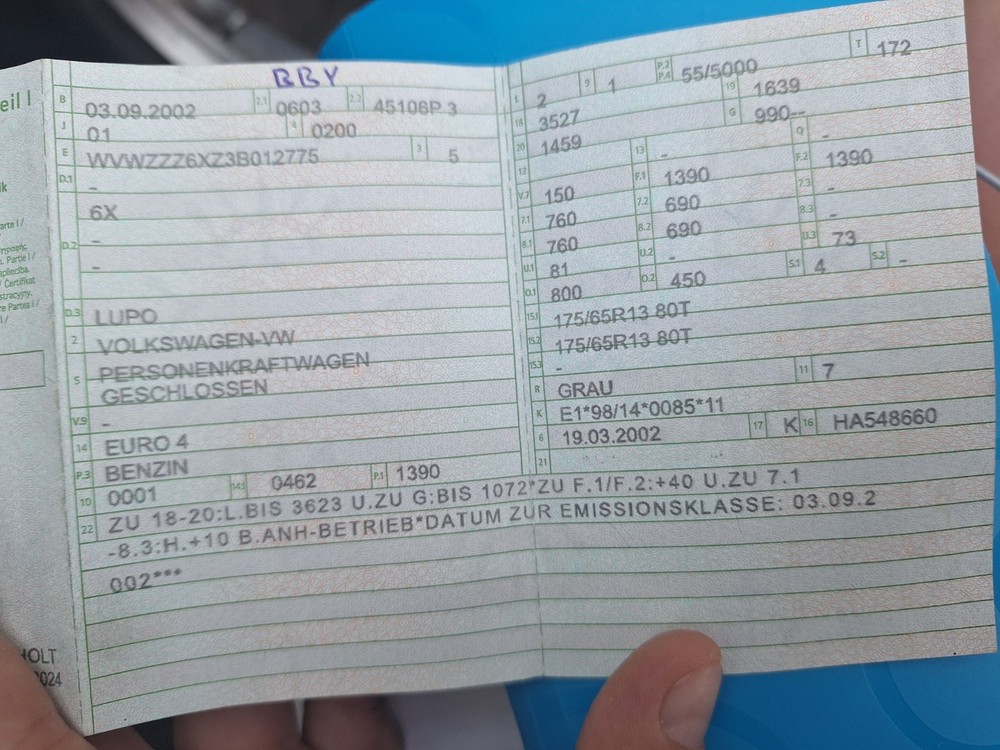 eil I
ik
arte I /
. Parte I /
apliecība.
/ Certifikat
stracyjny.
re Partea I /
I /
HOLT
2024
BBY
B 03.09.2002 2.1 0603 2.2 45106P 3
J 01 4 0200
E WVWZZZ6XZ3B012775 3 5
D.1 -
6X
D.2 -
-
D.3 LUPO
2 VOLKSWAGEN-VW
5 PERSONENKRAFTWAGEN
GESCHLOSSEN
V.9 -
14 EURO 4
P.3 BENZIN
10 0001 14.1 0462 P.1 1390
L 2 9 1 P.2 P.4 55/5000 T 172
18 3527 19 1639
20 1459 G 990--
12 13 - Q -
V.7 150 F.1 1390 F.2 1390
7.1 760 7.2 690 7.3 -
8.1 760 8.2 690 8.3 -
U.1 81 U.2 - U.3 73
O.1 800 O.2 450 S.1 4 S.2 -
15.1 175/65R13 80T
15.2 175/65R13 80T
15.3 -
R GRAU 11 7
K E1*98/14*0085*11
6 19.03.2002 17 K 16 HA548660
21
22 ZU 18-20:L.BIS 3623 U.ZU G:BIS 1072*ZU F.1/F.2:+40 U.ZU 7.1
-8.3:H.+10 B.ANH-BETRIEB*DATUM ZUR EMISSIONSKLASSE: 03.09.2
002***